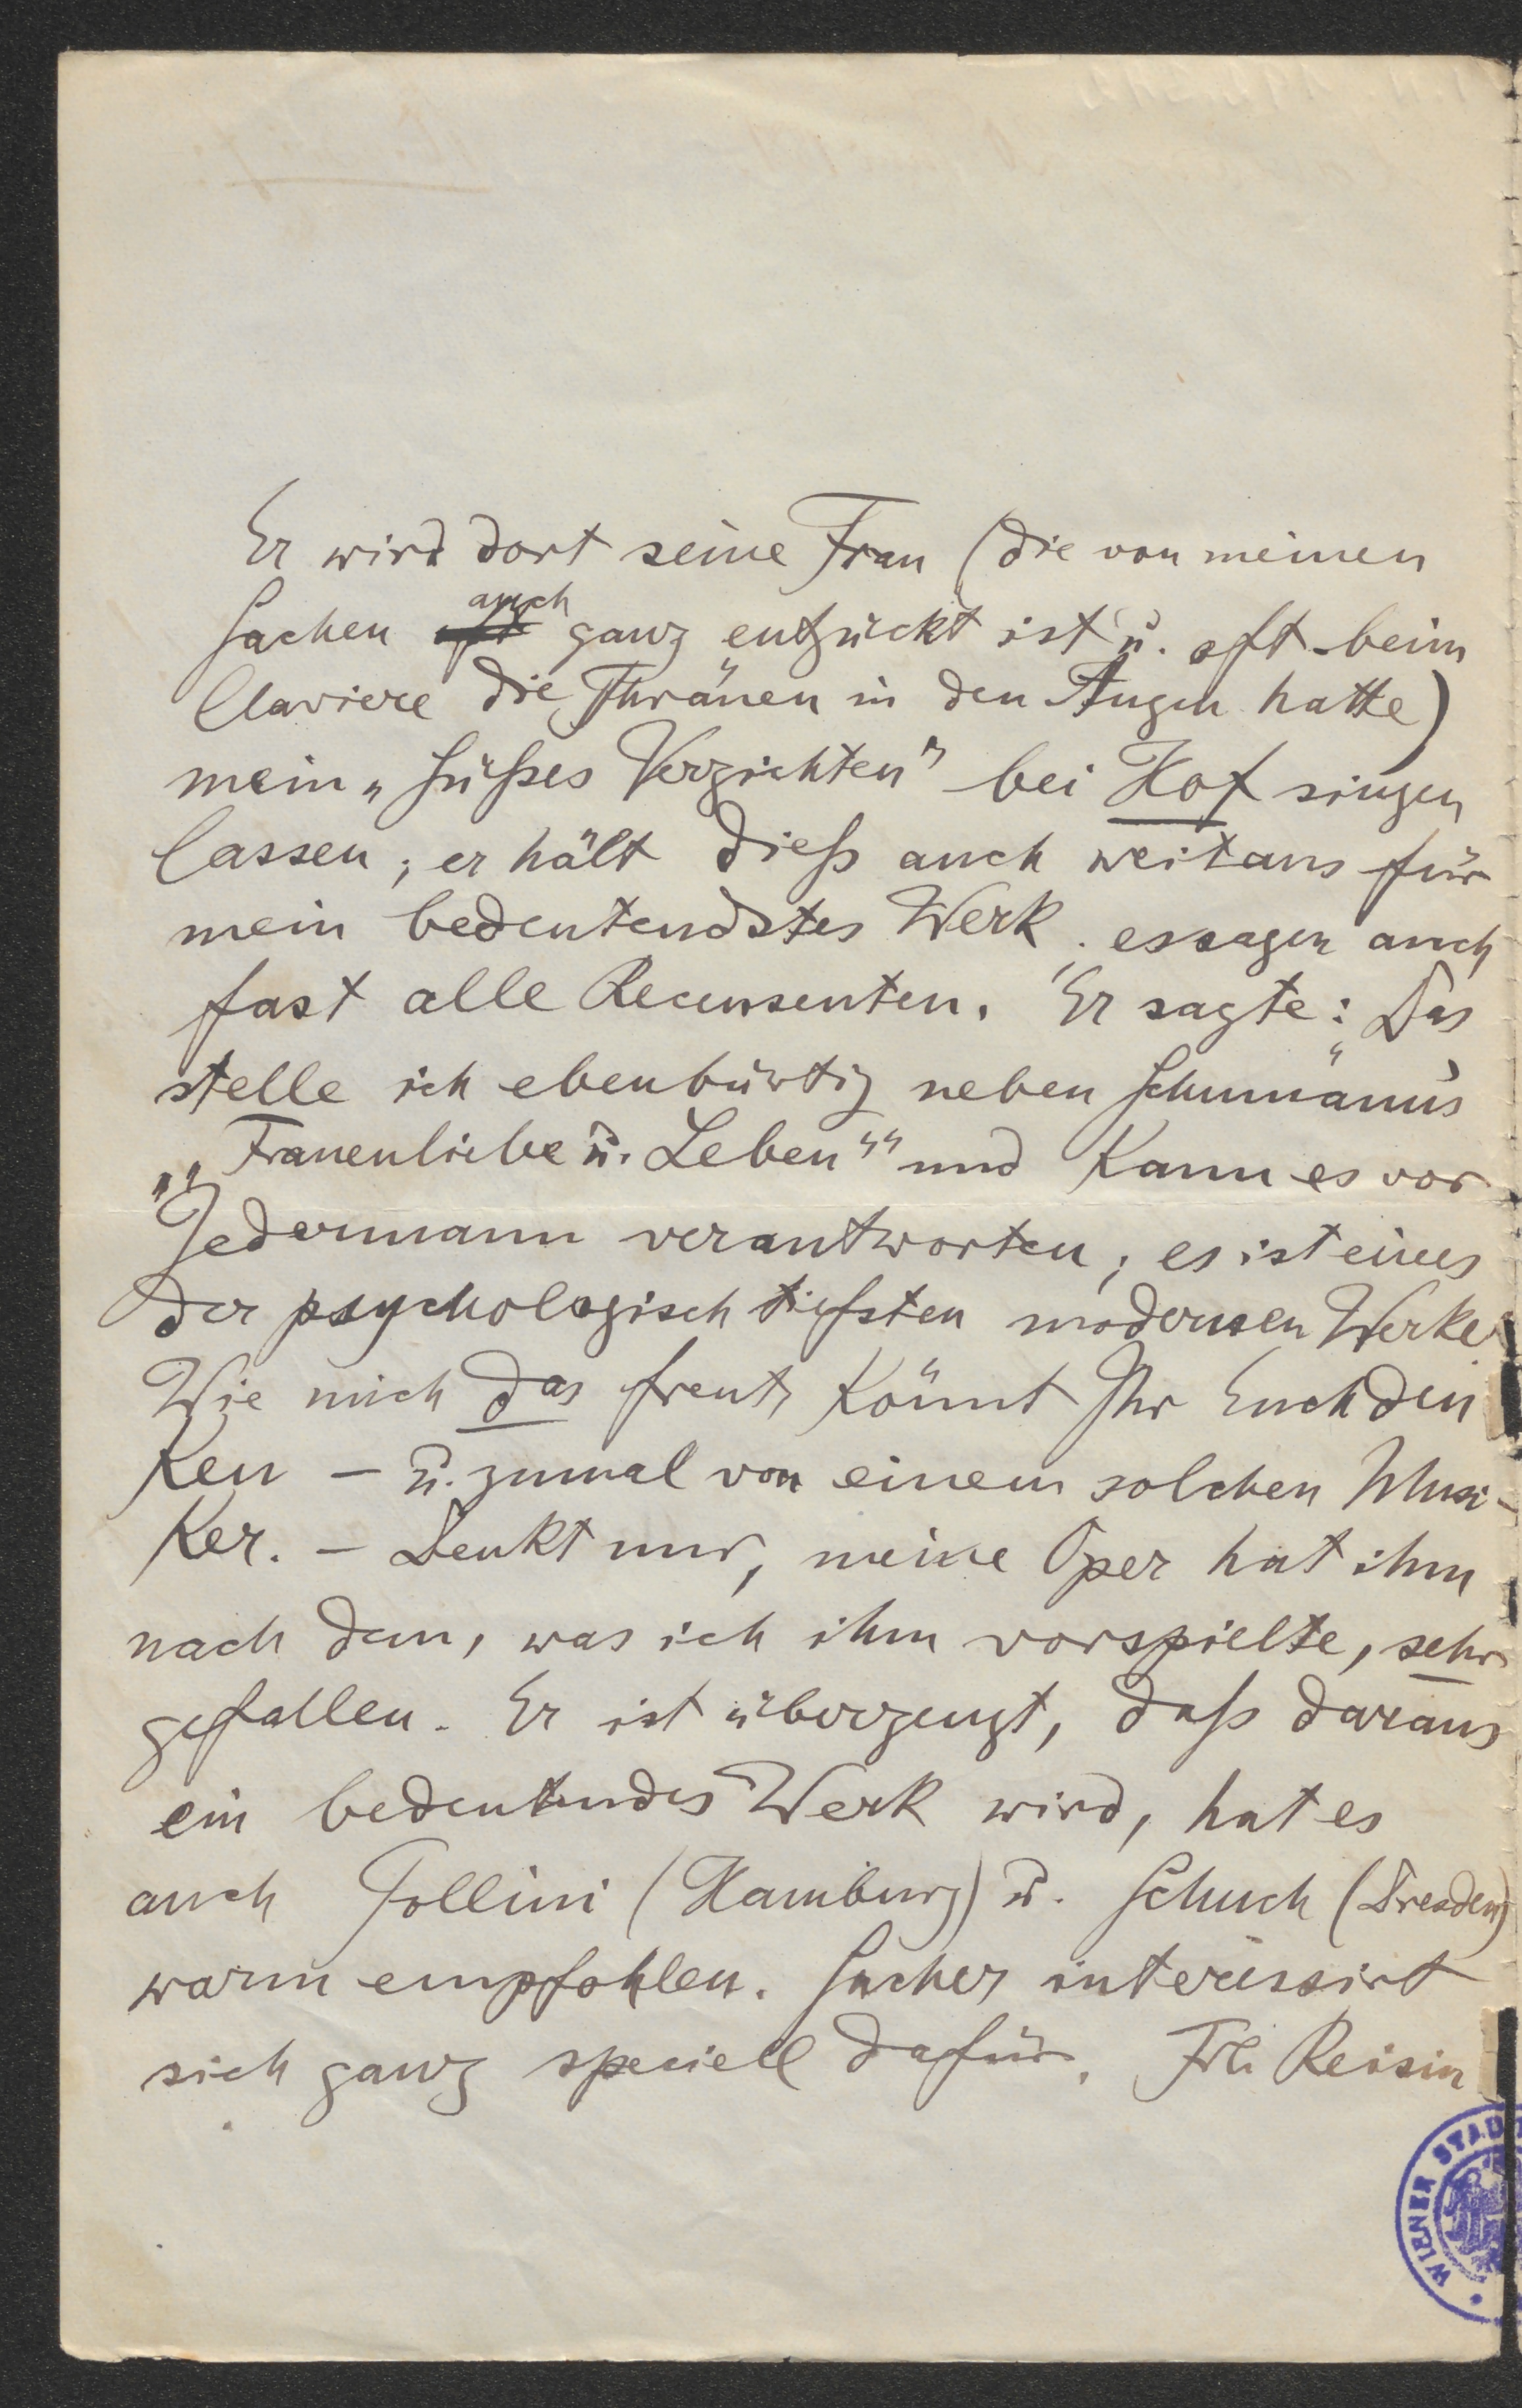 Er wird dort seine Frau (die von meinen
Sachen auch ganz entzückt ist u. oft beim
Claviere die Thränen in den Augen hatte)
mein „Süßes Verzichten" bei Hof singen
lassen; er hält dieß auch weitaus für
mein bedeutendstes Werk. es sagen auch
fast alle Recensenten. Er sagte: „Das
stelle ich ebenbürtig neben Schumann's
„„Frauenliebe u. Leben"" und kann es vor
Jedermann verantworten; es ist eines
der psychologisch tiefsten modernen Werke"
Wie mich das freut, könnt Ihr Euch den
ken – u. zumal von einem solchen Musi-
ker. – Denkt nur, meine Oper hat ihm
nach dem, was ich ihm vorspielte, sehr
gefallen. Er ist überzeugt, daß daraus
ein bedeutendes Werk wird, hat es
auch Pollini (Hamburg) u. Schuch (Dresden)
warm empfohlen. Sucher interessirt
sich ganz speciell dafür. Frl. Reisin
WIENER STAD